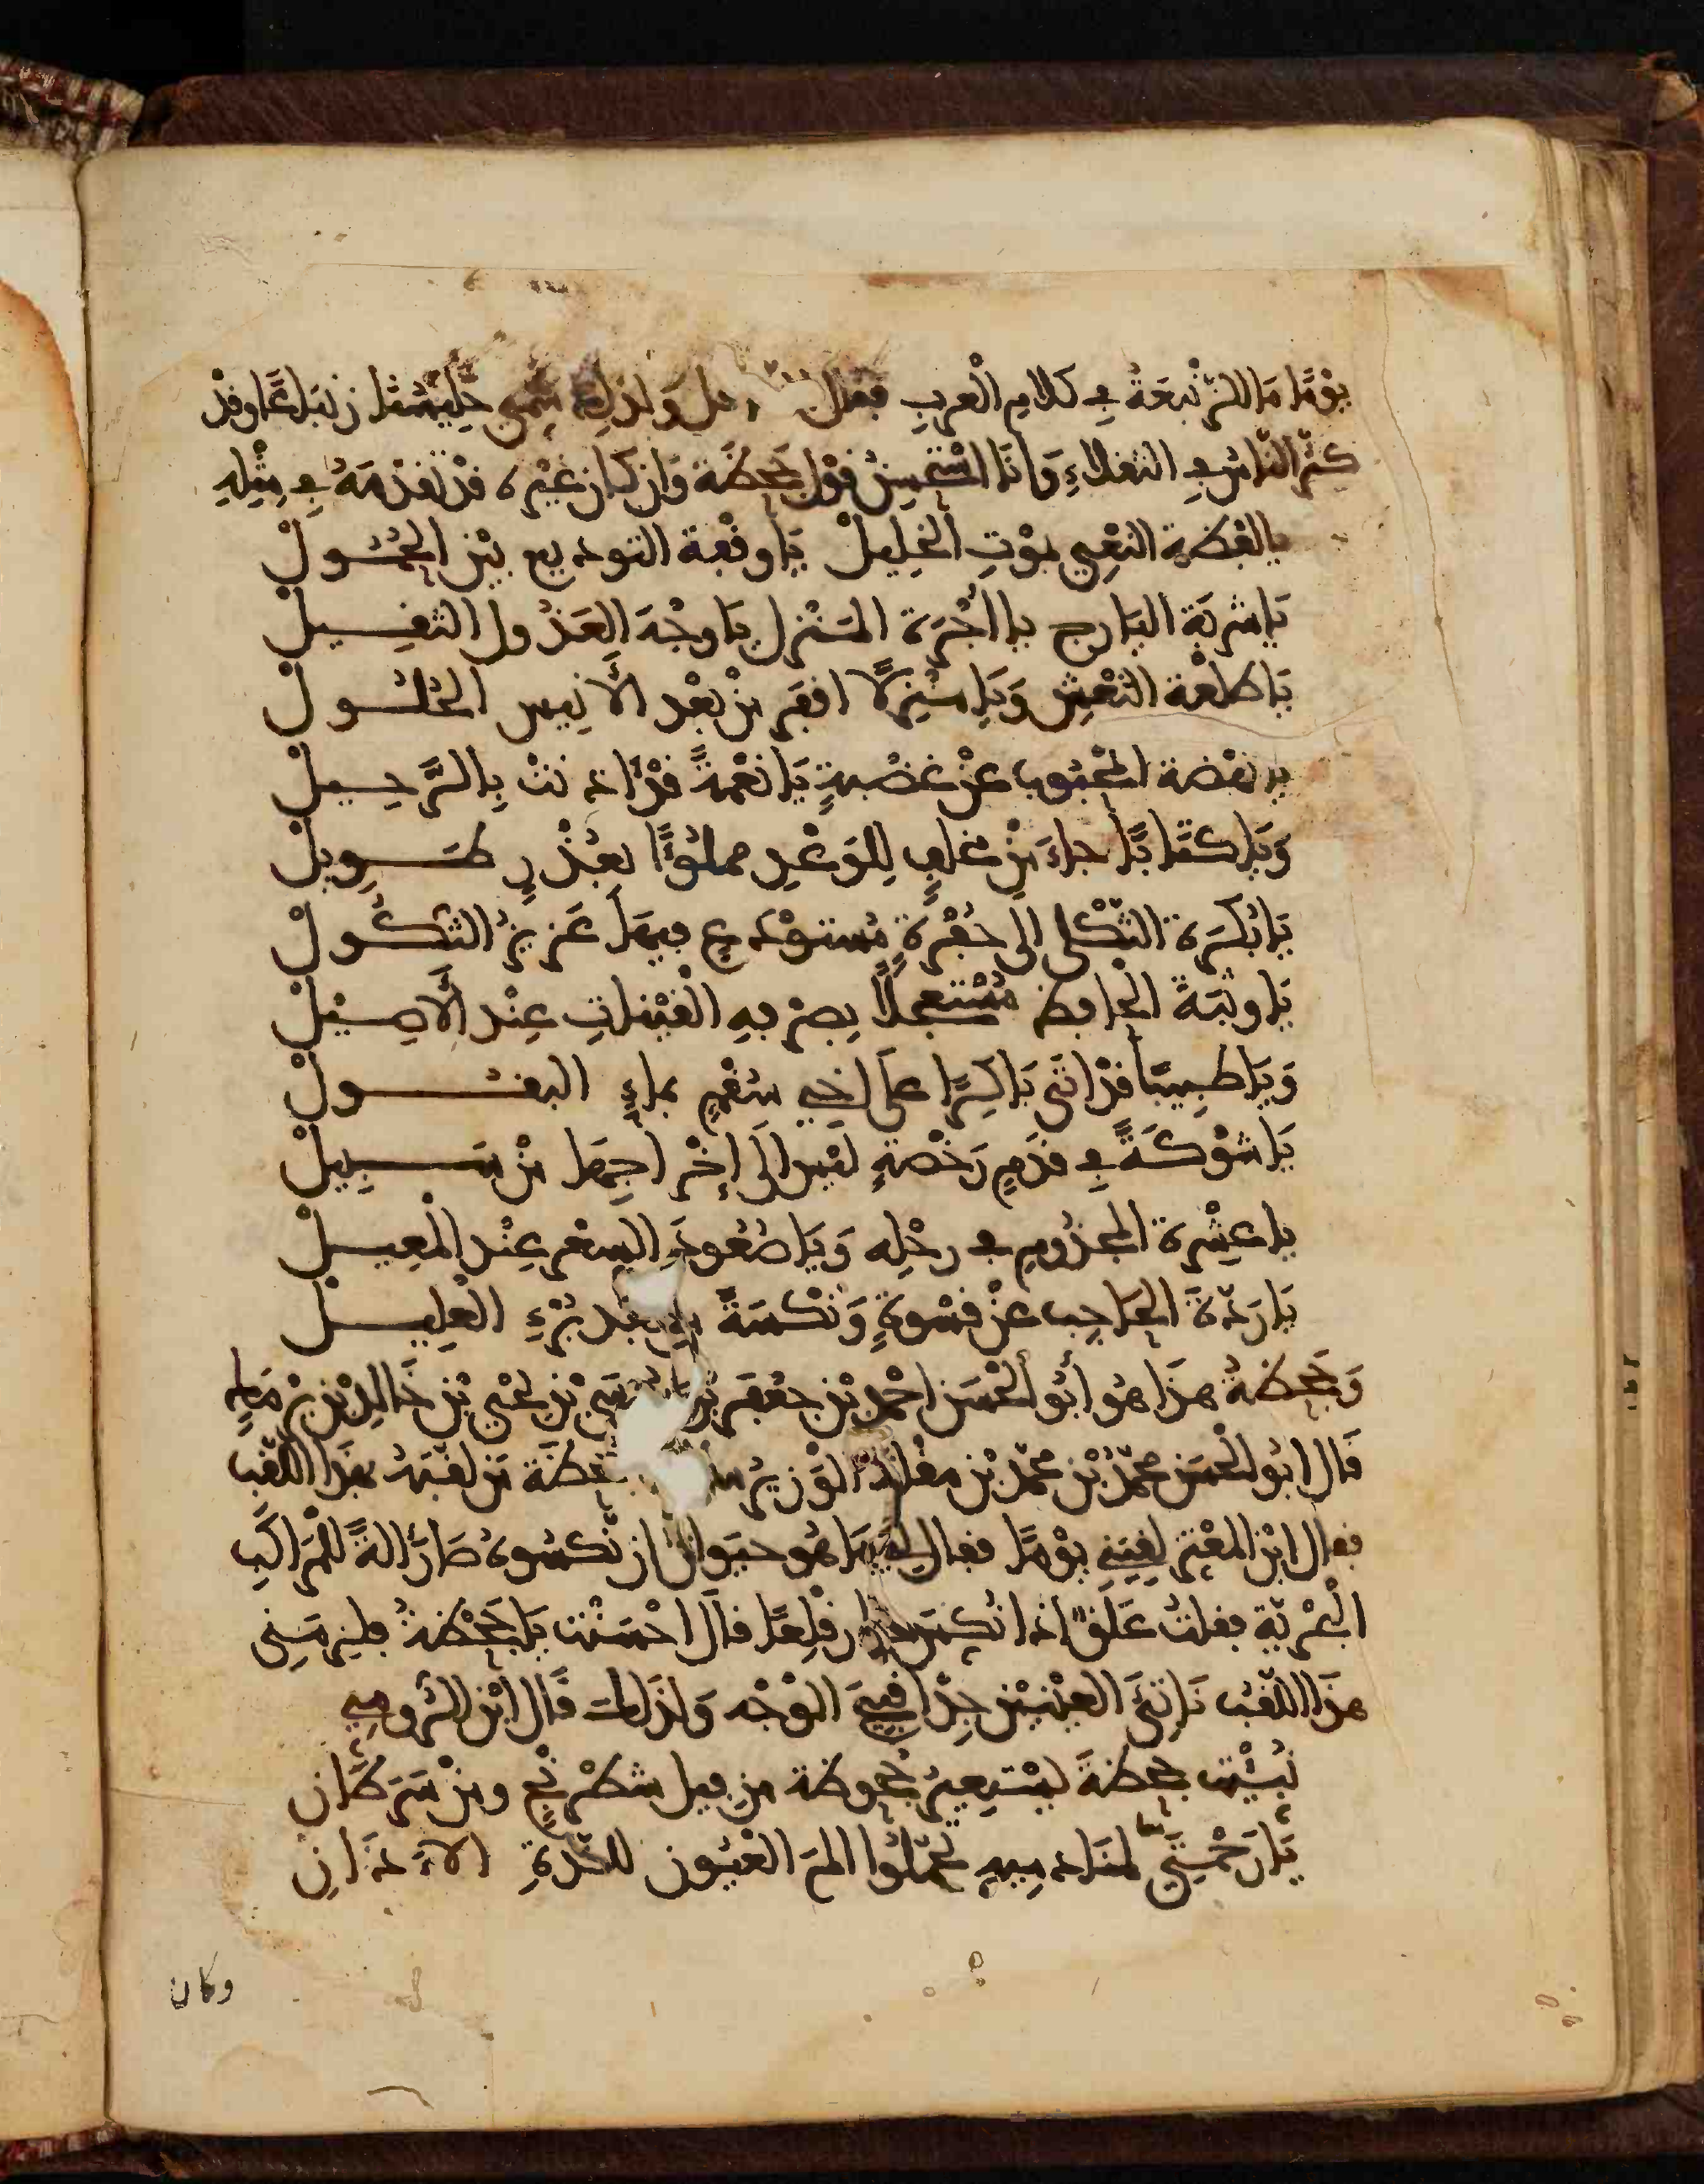 يَوْمًا مَا الزَّبْعَةُ فِي كلامِ الْعربِ فقال وَلِذلِكَ سُمِّيَ زَوْبَعًا وقدْ
كثّر النّاسُ في الثقلاءِ وَانَا اسْتحْسِنُ قوْل جَحظَةَ وَانْ كَانَ غيْرُهُ قدْ تقدّمَهُ فِي مِثْلِهِ
يالفْظةَ النّعْيِ بموْتِ الْخلِيلْ يَا وقْفة التوديع بيْن الحُمُولْ
يَا شربَة اليَارج يا اجْرَة المنْزل يَا وجْهَ العَذُول الثقيلْ
يَا طلْعة النّعْشِ وَيَا منْزِلًا اقفرَ مِنْ بعْد الأنِيس الحُلُولْ
يا نهْضة المحْبوب عنْ غضْبةٍ يَا نعْمةً قدْ آذنتْ بِالرّحِيلْ
وَيَا كتَابًا جاءَ مِنْ مخلفٍ لِلوَعْدِ مملوءًا بعُذْرٍ طَوِيلْ
يَا بُكْرَة الثّكْلى إلى حُفْرَةٍ مُستوْدعٍ فيهَا عَزيزُ الثكُولْ
يَا وثبَةَ الحافظ مُسْتعجلًا بصرفه القيْناتِ عِنْد الأصِيْلْ
وَيَا طبِيبًا قدْ اتى بَاكِرًا على اخي سُقْمٍ بماءِ البقُولْ
يَا شوْكَةً فِي قدَمٍ رَخْصةٍ ليْس الَى إخْراجهَا منْ سَبِيلْ
يا عِشْرة المجْذُومِ في رحْلِه وَيَا صُعُودَ السعْر عِنْد الْمعِيلْ
يَا رَدَّةَ الحَاجِب عنْ قسْوةٍ وَنكْسَةً منْ بعْد بُرْءِ الْعلِيلْ
وَجَحظةُ هذَا هُو ابُو الْحسَن احْمدُ بْن جعْفر بْن مُوسَى بْن يَحْيى بْن خَالِد بْن بَرْمَك
قَال ابُو الْحسَن محمّدُ بْن محمّد بْن مقلة الْوَزيرُ سألْتُ جحظَةَ مَن لقّبَهُ بهذَا اللّقب
فقال ابْن المعْتزّ لقِيَنِي يوْمًا فقال لي مَا هُو حيَوانٌ انْ نكسُوهُ صَارَ الةً للْمَراكِب
الْبَحْرِيّة فقلت عَلَقٌ اذا نُكسَ صار قِلْعًا قال احْسَنْت يَا جَحْظةُ فلزمَنِي
هذَا اللّقبُ نَاتِئَ العيْنيْن جِدًّا قبِيحَ الوْجْه وَلِذلك قَال ابْن الرُّومِي
نُبّئْت جحظةَ يسْتعِيرُ جُحوظهُ مِن فيل شطْرنْجٍ ومنْ سَرَطَانِ
يَا رَحْمَتَا لمنَادمِيهِ تحمّلُوا المَ الْعيُون للذّةِ الآذَانِ
وكان